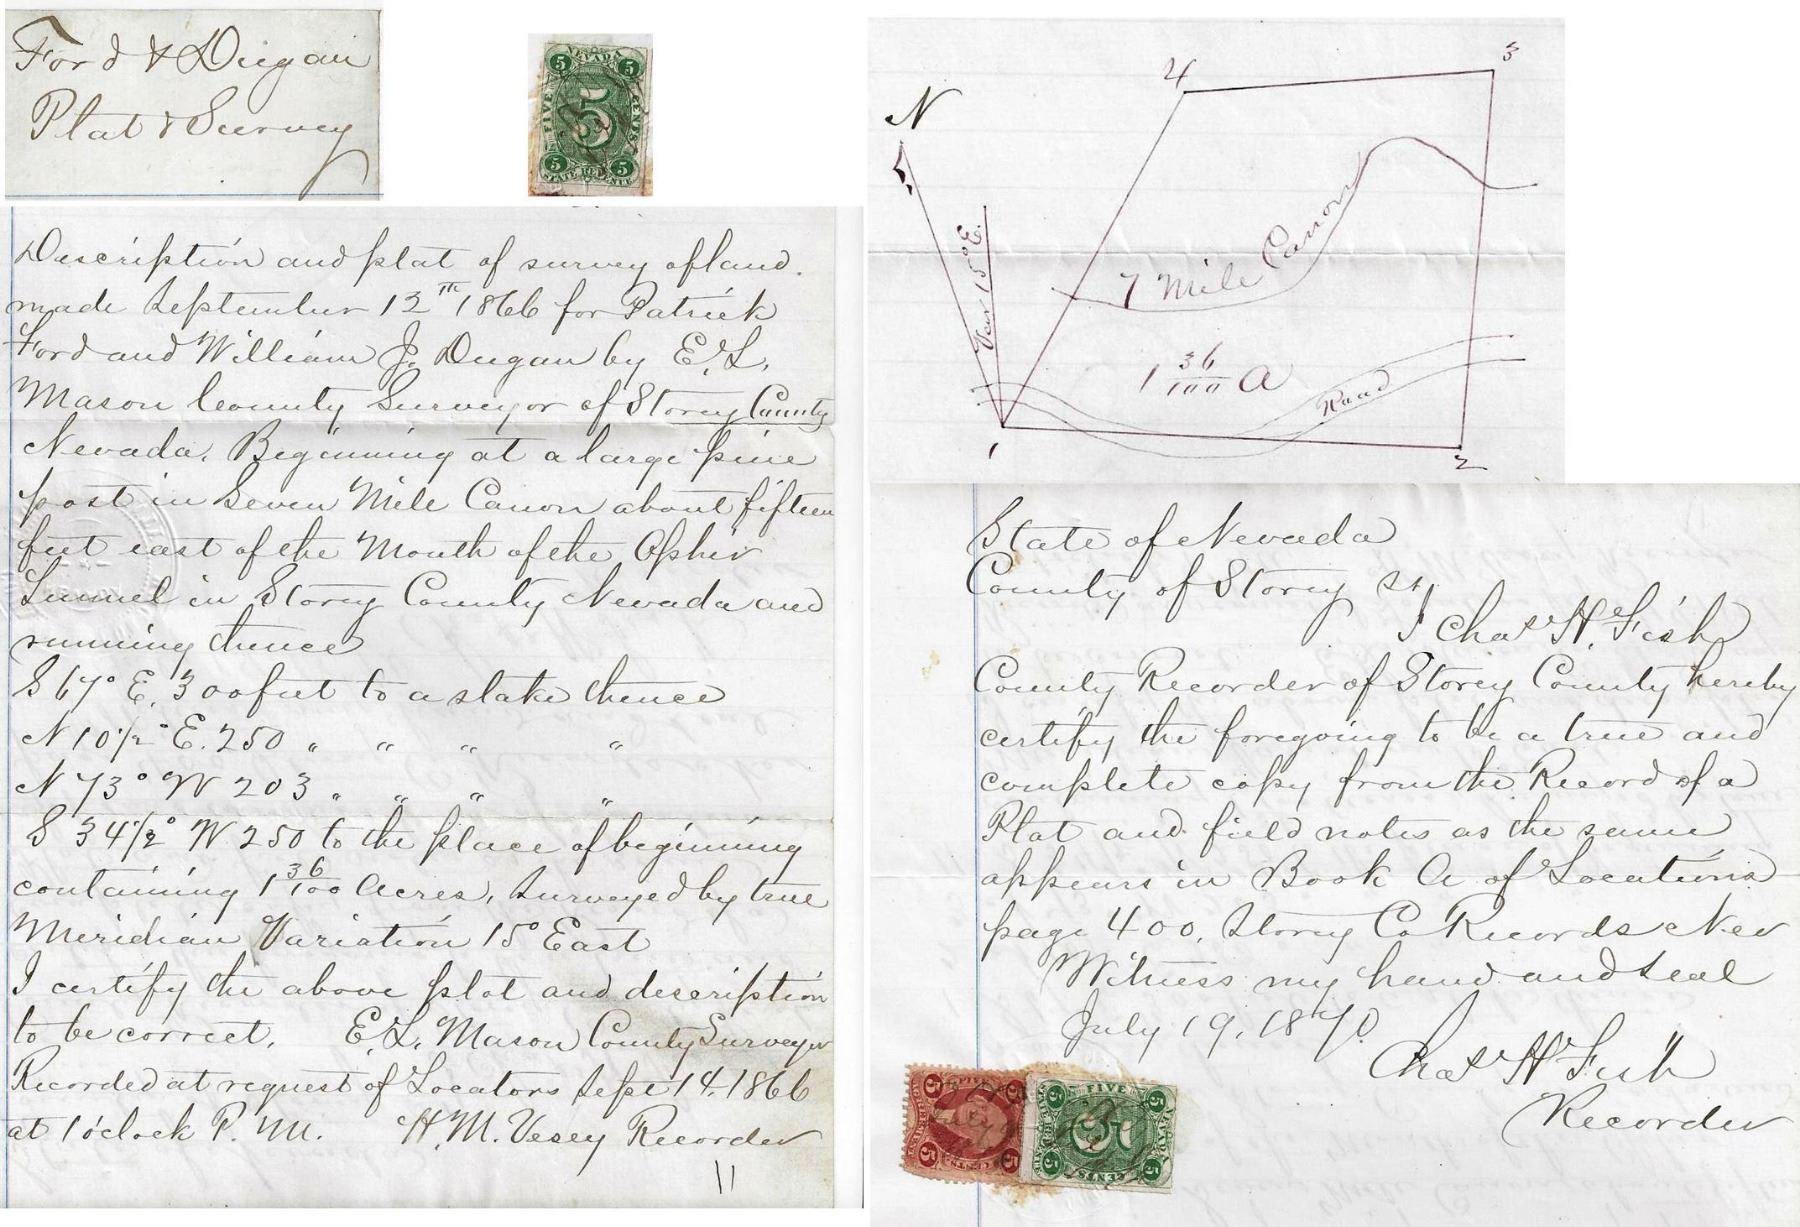 Ford & Dugan
Plat & Survey
NEVADA
5 5
FIVE CENTS
5
5 5
STATE REVENUE
Description and plat of survey of land.
made September 12th 1866 for Patrick
Ford and William J. Dugan by E. L.
Mason County Surveyor of Storey County
Nevada. Beginning at a large pine
post in Seven Mile Canon about fifteen
feet east of the Mouth of the Ophir
Tunnel in Storey County Nevada and
running thence
S 67° E. 300 feet to a stake thence
N 10 1/2° E. 250 " " " "
N 73° W 203 " " " "
S 34 1/2° W 250 to the place of beginning
containing 1 36/100 Acres, Surveyed by true
Meridian Variation 15° East
I certify the above plot and description
to be correct. E. L. Mason County Surveyor
Recorded at request of Locators Sept 14. 1866
at 1 o'clock P. M. H. M. Vesey Recorder
N
4
3
Var 15° E.
7 Mile Canon
1 36/100 A
Road
1
2
State of Nevada
County of Storey ss
I Chas H. Fish
County Recorder of Storey County hereby
certify the foregoing to be a true and
complete copy from the Record of a
Plat and field notes as the same
appears in Book A of Locations
page 400, Storey Co Records Nev
Witness my hand and seal
July 19, 1870
Chas H Fish
Recorder
5 FIVE 5
5 CENTS 5
5 FIVE 5
NEVADA
5
5 CENTS 5